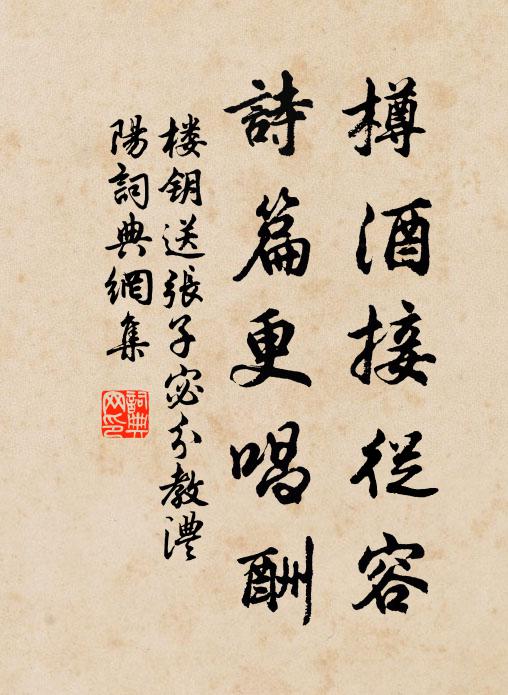 樽酒接從容
詩篇更唱酬
楼钥送張子宓分教澧
陽詞典網集
詞典网印